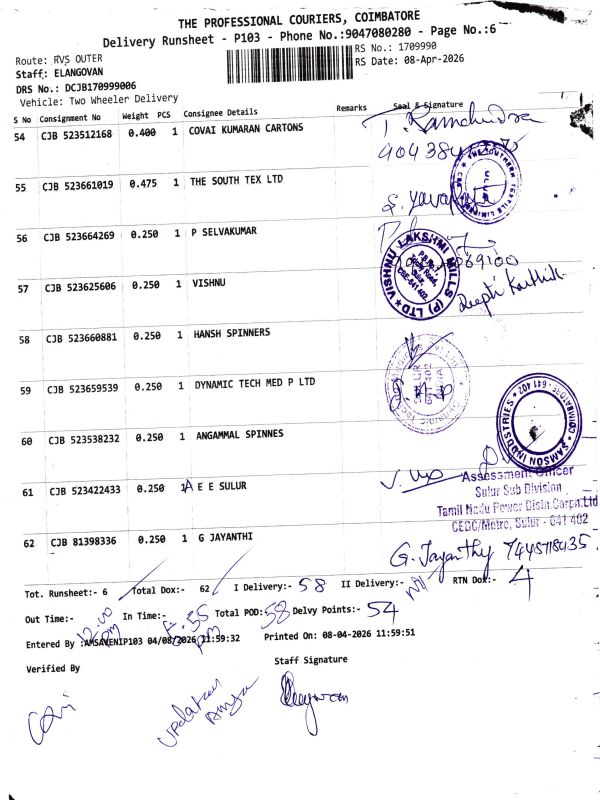 THE PROFESSIONAL COURIERS, COIMBATORE
Delivery Runsheet - P103 - Phone No.:9047080280 - Page No.:6
Route: RVS OUTER
RS No.: 1709990
Staff: ELANGOVAN
RS Date: 08-Apr-2026
DRS No.: DCJB170999006
Vehicle: Two Wheeler Delivery
S No Consignment No Weight PCS Consignee Details Remarks Seal & Signature
54 CJB 523512168 0.400 1 COVAI KUMARAN CARTONS
55 CJB 523661019 0.475 1 THE SOUTH TEX LTD
56 CJB 523664269 0.250 1 P SELVAKUMAR
57 CJB 523625606 0.250 1 VISHNU
VISHNU LAKSHMI MILLS (P) LTD
Deepti Karthik
58 CJB 523660881 0.250 1 HANSH SPINNERS
59 CJB 523659539 0.250 1 DYNAMIC TECH MED P LTD
60 CJB 523538232 0.250 1 ANGAMMAL SPINNES
SAMSON INDUSTRIES * COIMBATORE - 641 402
61 CJB 523422433 0.250 1 A E E SULUR
Assessment Officer
Sulur Sub Division
Tamil Nadu Power Distn.Corpn.Ltd
CEDC/Metro, Sulur - 641 402
62 CJB 81398336 0.250 1 G JAYANTHI
G. Jayanthy
Tot. Runsheet:- 6 Total Dox:- 62 I Delivery:- 58 II Delivery:- Nil RTN Dox:- 4
Out Time:- 12.00 pm In Time:- Total POD: 58 Delvy Points:- 54
Entered By :AMSAVENIP103 04/08/2026 11:59:32 Printed On: 08-04-2026 11:59:51
Verified By
Staff Signature